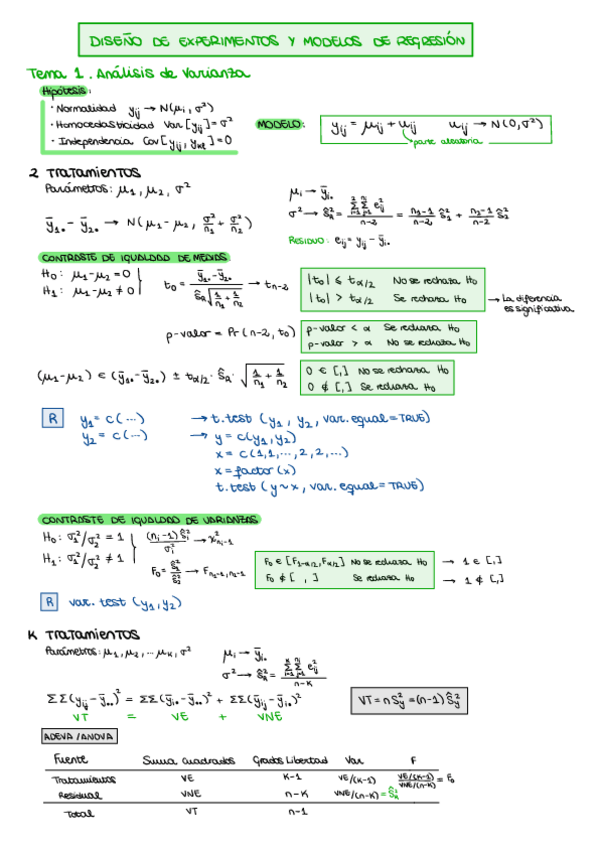 DISEÑO DE EXPERIMENTOS Y MODELOS DE REGRESIÓN
Tema 1. Análisis de Varianza
Hipótesis:
· Normalidad yij → N(μi, σ²)
· Homocedasticidad Var[yij] = σ²
· Independencia Cov[yij, ykl] = 0
MODELO: yij = μij + uij   uij → N(0, σ²)
parte aleatoria
2 TRATAMIENTOS
Parámetros: μ1, μ2, σ²
μi → ȳi•
σ² → ŝR² = ΣΣ eij² / (n-2) = (n1-1)/(n-2) ŝ1² + (n2-1)/(n-2) ŝ2²
ȳ1• - ȳ2• → N(μ1 - μ2, σ²/n1 + σ²/n2)
RESIDUO: eij = yij - ȳi•
CONTRASTE DE IGUALDAD DE MEDIAS
H0: μ1 - μ2 = 0
H1: μ1 - μ2 ≠ 0
t0 = (ȳ1• - ȳ2•) / (ŝR √(1/n1 + 1/n2)) → tn-2
|t0| ≤ tα/2 No se rechaza H0
|t0| > tα/2 Se rechaza H0 → La diferencia es significativa
p-valor = Pr(n-2, t0)
p-valor < α Se rechaza H0
p-valor > α No se rechaza H0
(μ1 - μ2) ∈ (ȳ1• - ȳ2•) ± tα/2 · ŝR · √(1/n1 + 1/n2)
0 ∈ [,] No se rechaza H0
0 ∉ [,] Se rechaza H0
R y1 = c(...) → t.test (y1, y2, var.equal=TRUE)
y2 = c(...) → y = c(y1, y2)
x = c(1,1,...,2,2,...)
x = factor(x)
t.test (y~x, var.equal=TRUE)
CONTRASTE DE IGUALDAD DE VARIANZAS
H0: σ1²/σ2² = 1
H1: σ1²/σ2² ≠ 1
(ni-1) ŝi² / σi² → χ²ni-1
F0 = ŝ1²/ŝ2² → Fn1-1, n2-1
F0 ∈ [F1-α/2, Fα/2] No se rechaza H0 → 1 ∈ [,]
F0 ∉ [ , ] Se rechaza H0 → 1 ∉ [,]
R var.test (y1, y2)
K TRATAMIENTOS
Parámetros: μ1, μ2, ... μK, σ²
μi → ȳi•
σ² → ŝR² = ΣΣ eij² / (n-K)
ΣΣ(yij - ȳ••)² = ΣΣ(ȳi• - ȳ••)² + ΣΣ(yij - ȳi•)²
VT = VE + VNE
VT = n Sy² = (n-1) Ŝy²
ADEVA / ANOVA
Fuente Suma Cuadrados Grados Libertad Var F
Tratamientos VE K-1 VE/(K-1) VE/(K-1) / VNE/(n-K) = F0
Residual VNE n-K VNE/(n-K) = ŜR²
Total VT n-1